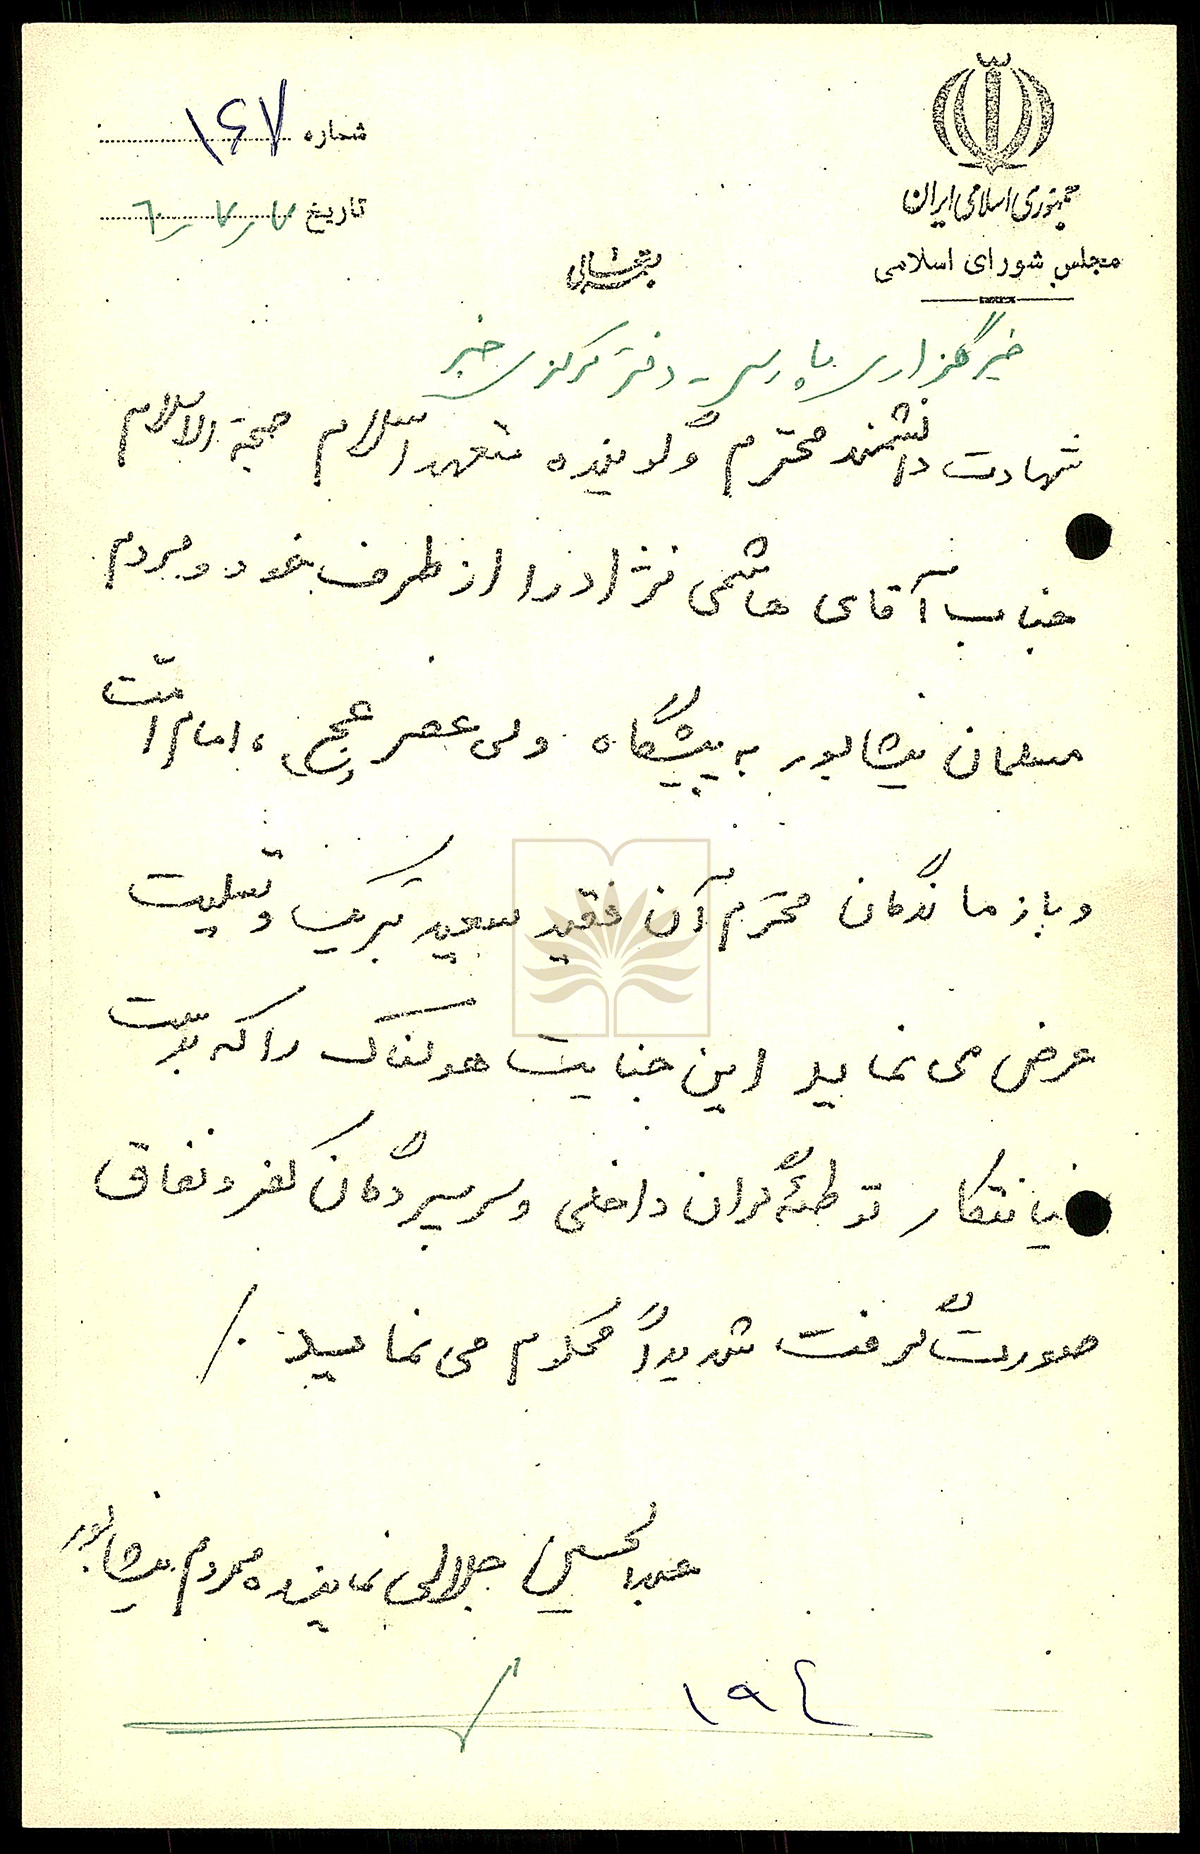 جمهوری اسلامی ایران
مجلس شورای اسلامی
شماره ۱۶۷
تاریخ ۷ ر ۷ ر ۶۰
بسمه تعالی
خبرگزاری پارس - دفتر مرکزی خبر
شهادت دانشمند محترم و گوینده متعهد اسلام حجة الاسلام
جناب آقای هاشمی نژاد را از طرف خود و مردم
مسلمان نیشابور به پیشگاه ولی عصر عج، امام امت
و بازماندگان محترم آن فقید سعید تبریک و تسلیت
عرض می نماید این جنایت هولناک را که بدست
خیانتکار توطئه گران داخلی و سرسپردگان کفر و نفاق
صورت گرفت شدیداً محکوم می نماید. /
عبدالحسین جلالی نماینده مردم نیشابور
۱۹۴